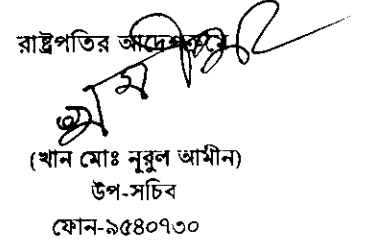 রাষ্ট্রপতির আদেশক্রমে
(খান মোঃ নূরুল আমীন)
উপ-সচিব
ফোন-৯৫৪০৭৩০